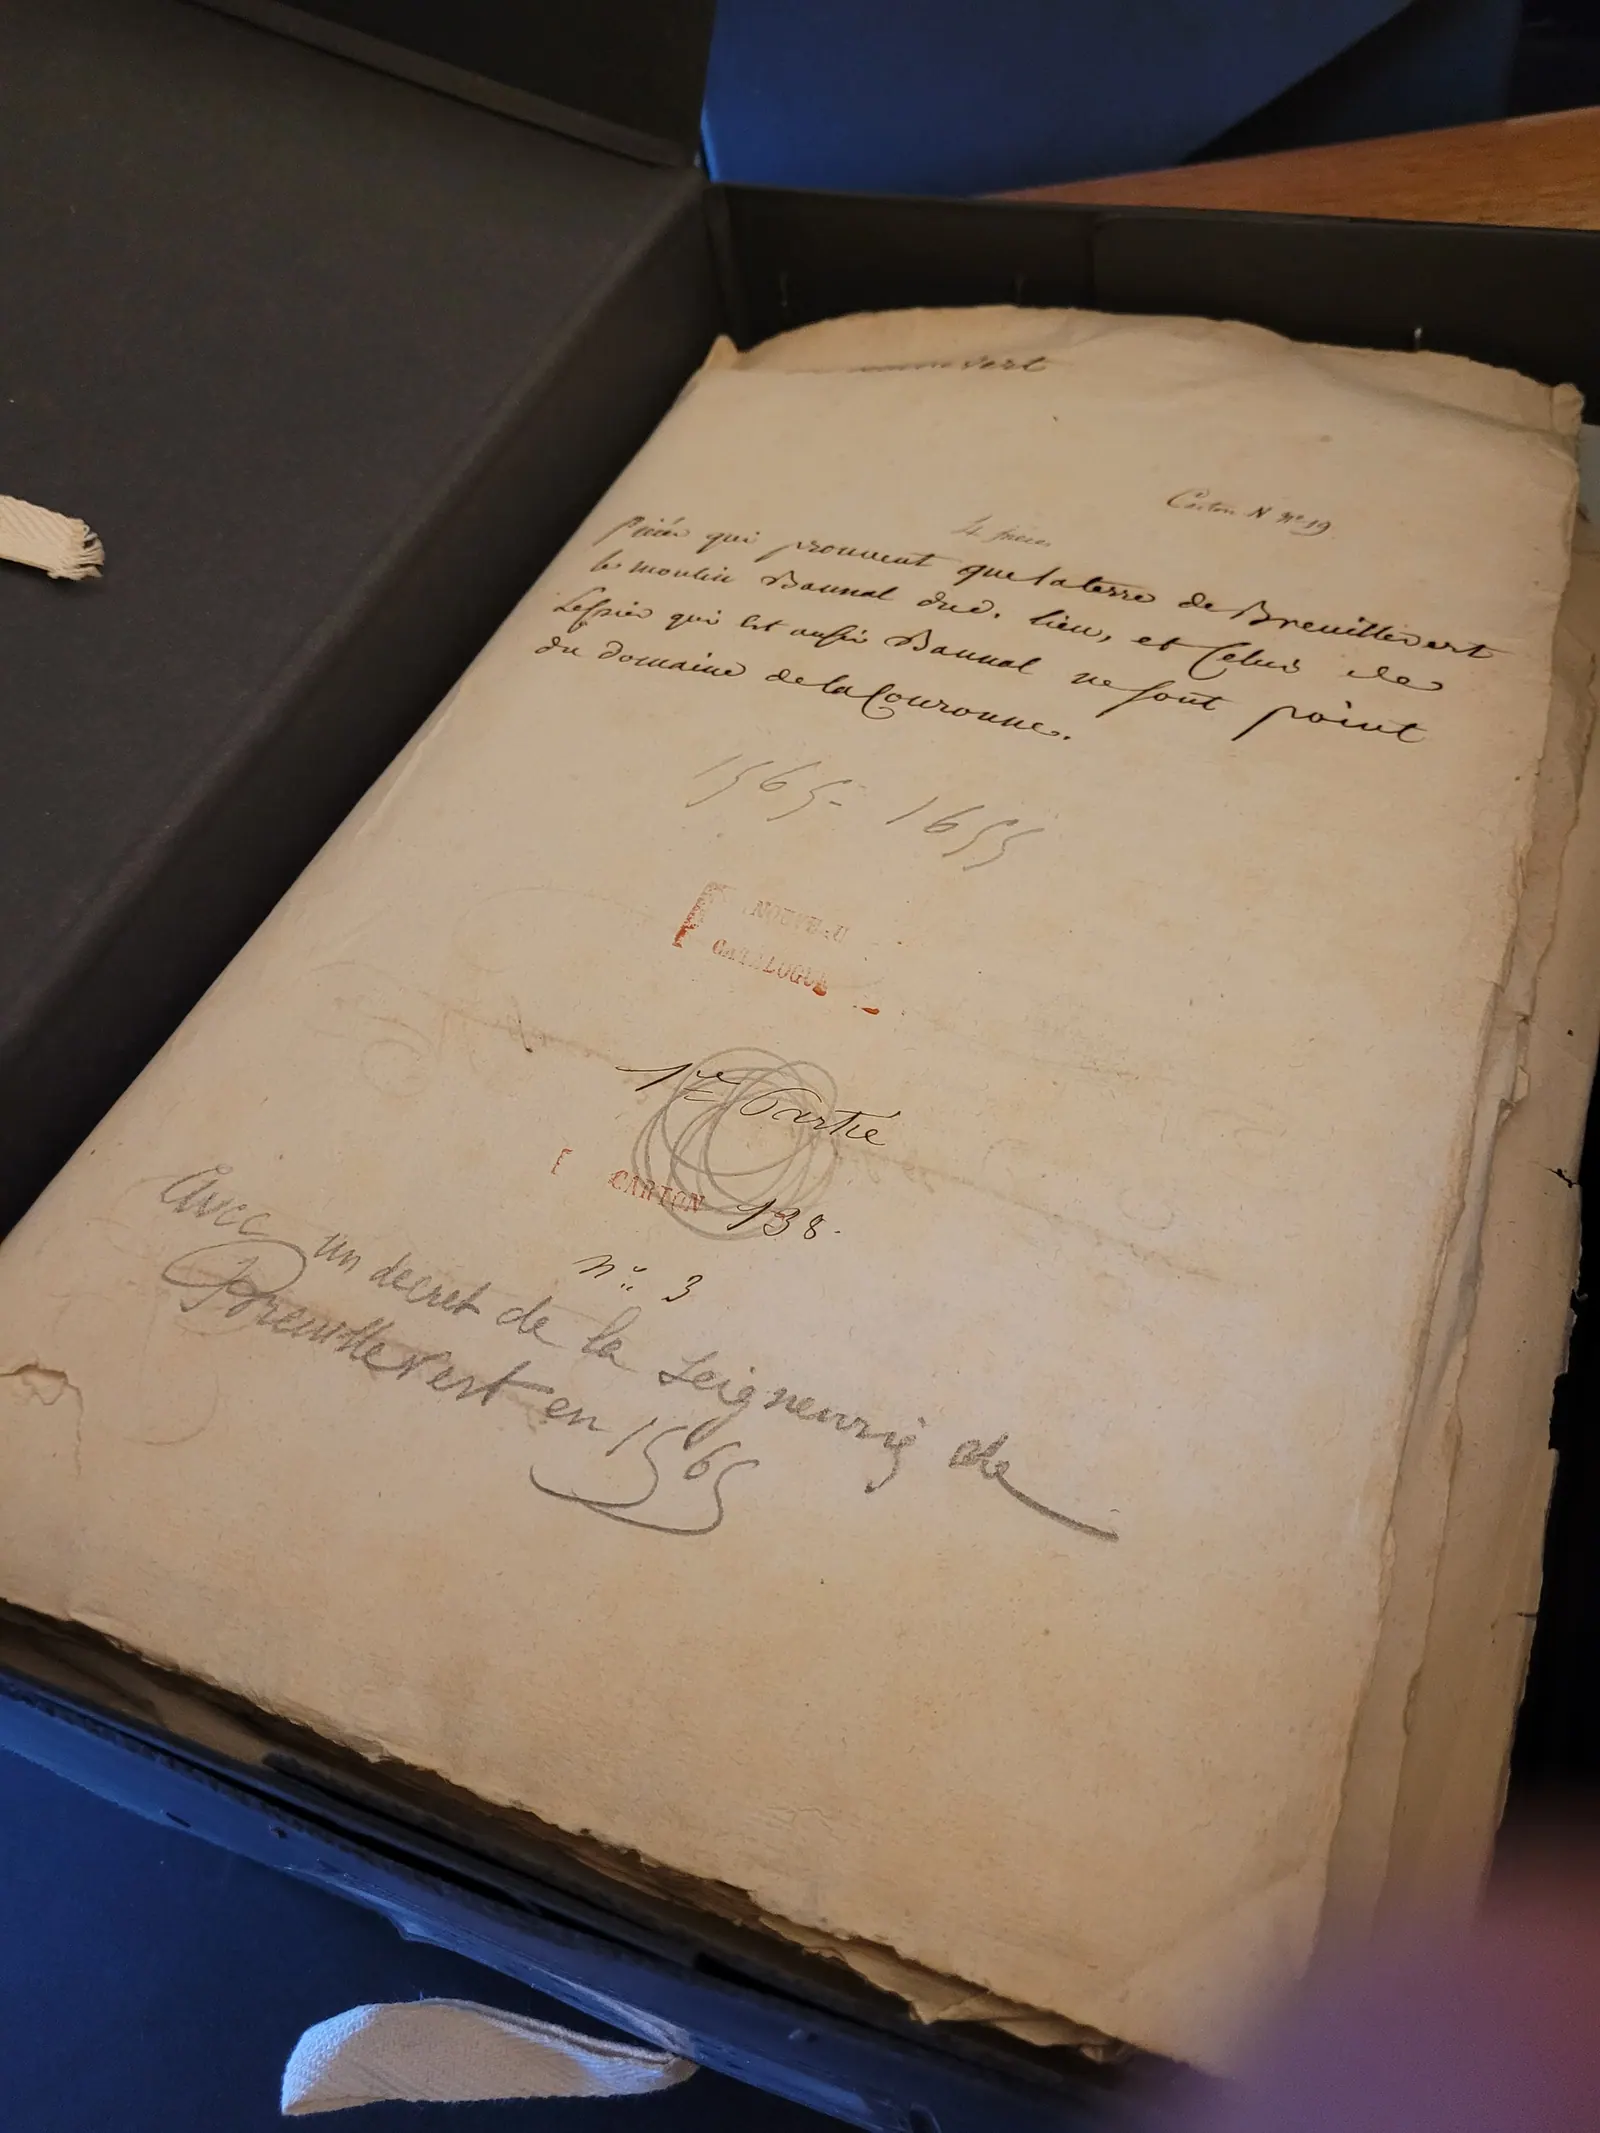 vert
Carton N nº 19
4 pièces
pièces qui prouvent que la terre de Breuillevert
le moulin Bannal dud. lieu, et Celui de
Lespier qui est aussi Bannal ne sont point
du domaine de la Couronne.
1565 - 1655
NOUVEAU
CATALOGUE
1re Partie
CARTON 138.
nº 3
Avec un decret de la Seigneurie de
BreuilleVert en 1565